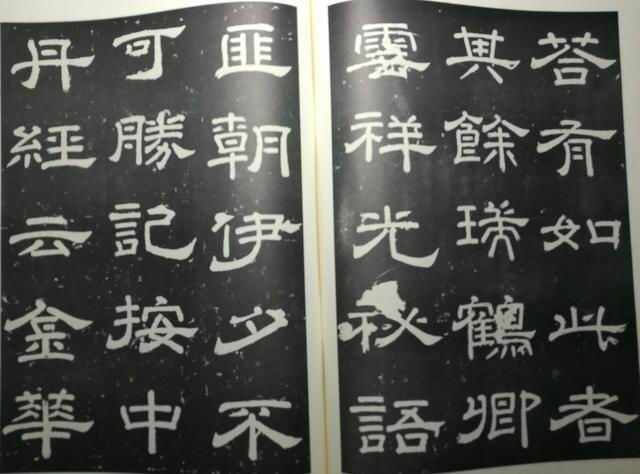 荅有如此者
其餘瑞鶴卿
雲祥光秘語
匪朝伊夕不
可勝記按中
丹經云金華